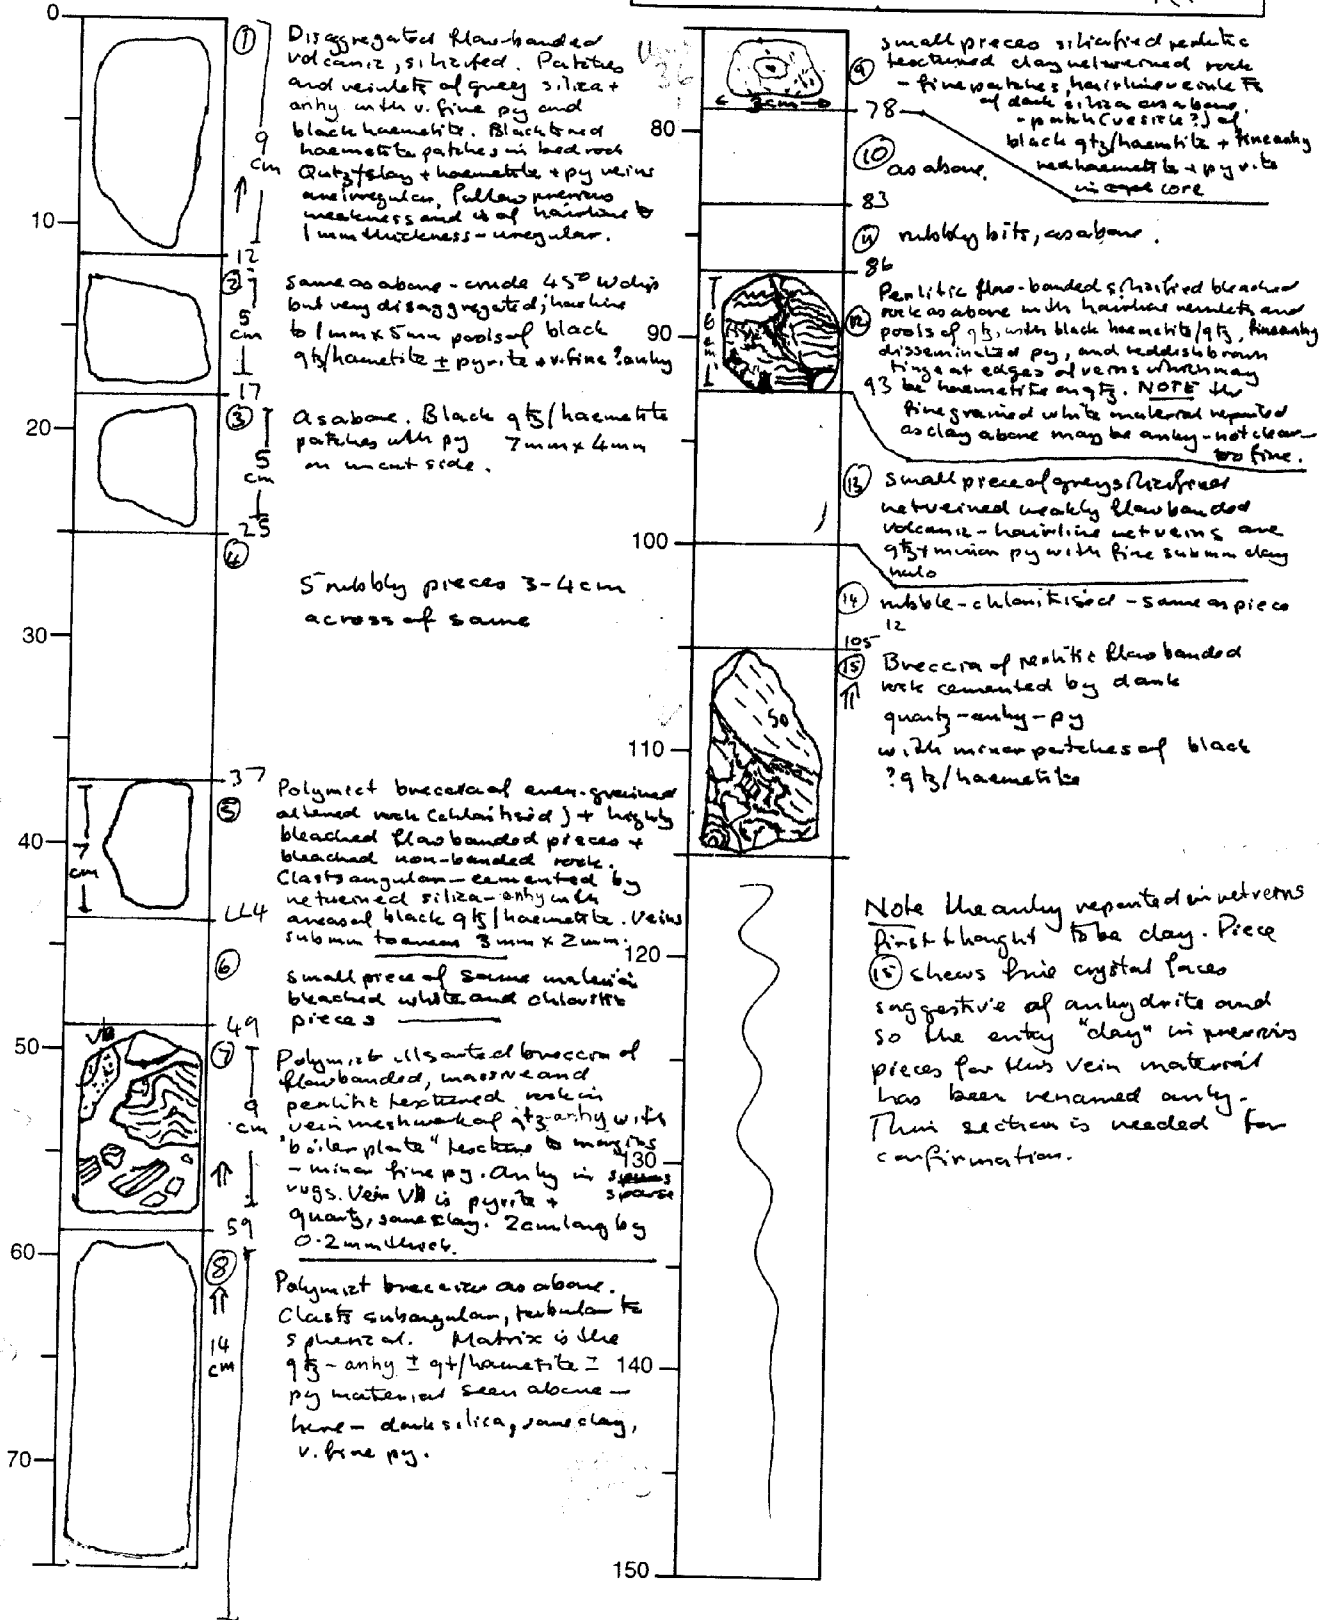 0
10
20
30
40
50
60
70
①
9
cm
Disaggregated flow-banded
volcanic, silicified. Patches
and veinlets of grey silica +
anhy with v. fine py and
black haematite. Black
haematite patches in bed rock
Qutz/clay + haematite + py veins
are irregular, follow previous
weakness and is of hairline to
1mm thickness - irregular.
12
②
5
cm
same as above - crude 45° W dip
but very disaggregated; hairline
to 1mm x 5mm pools of black
qtz/hametite ± pyrite + v. fine ?anhy
17
③
5
cm
As above. Black qtz/haematite
patches with py 7mm x 4mm
on uncut side.
25
④
5 rubbly pieces 3-4cm
across of same
37
⑤
7
cm
Polymict breccia of even-grained
altered rock (chloritised) + highly
bleached flow banded pieces +
bleached non-banded rock.
Clasts angular - cemented by
netveined silica-anhy with
areas of black qtz/haematite. Veins
submm to areas 3mm x 2mm.
44
⑥
small piece of same material
bleached white and chloritic
pieces
49
⑦
9
cm
Polymict breccia of
flowbanded, massive and
perlitic textured rock in
vein meshwork of qtz-anhy with
"boiler plate" texture to margins
- minor fine py. Anhy in
sparse
vugs. Vein VB is pyrite +
quartz, some clay. 2cm long by
0.2mm thick.
59
⑧
14
cm
Polymict breccia as above.
Clasts subangular, tabular to
spherical. Matrix is the
qtz - anhy ± qt/hametite ±
py material seen above -
here - dark silica, some clay,
v. fine py.
80
90
100
110
120
130
140
150
3cm
⑨
small pieces silicified perlitic
textured clay netveined rock
- fine patches, hairline veinlets
of dark silica as above.
- patch (vesicle?) of
black qtz/haemtite + fine anhy
red haematite + pyrite
in core
78
⑩
as above.
83
⑪
rubbly bits, as above.
86
⑫
6
cm
Perlitic flow-banded silicified bleached
rock as above with hairline veinlets and
pools of qtz, with black haemetite/qtz, fine anhy
disseminated py, and reddish brown
tinge at edges of veins which may
93 be haemetite on qtz. NOTE the
fine grained white material reported
as clay above may be anhy - not clear -
too fine.
⑬
small piece of grey silicified
netveined weakly flow banded
volcanic - hairline netveins are
qtz + minor py with fine submm clay
halo
⑭
rubble - chloritised - same as piece
12
105
⑮
So
Breccia of perlitic flow banded
rock cemented by dark
quartz-anhy-py
with minor patches of black
?qtz/haemetite
Note the anhy reported in netveins
first thought to be clay. Piece
⑮ shows fine crystal faces
suggestive of anhydrite and
so the entry "clay" in previous
pieces for this vein material
has been renamed anhy.
Thin section is needed for
confirmation.